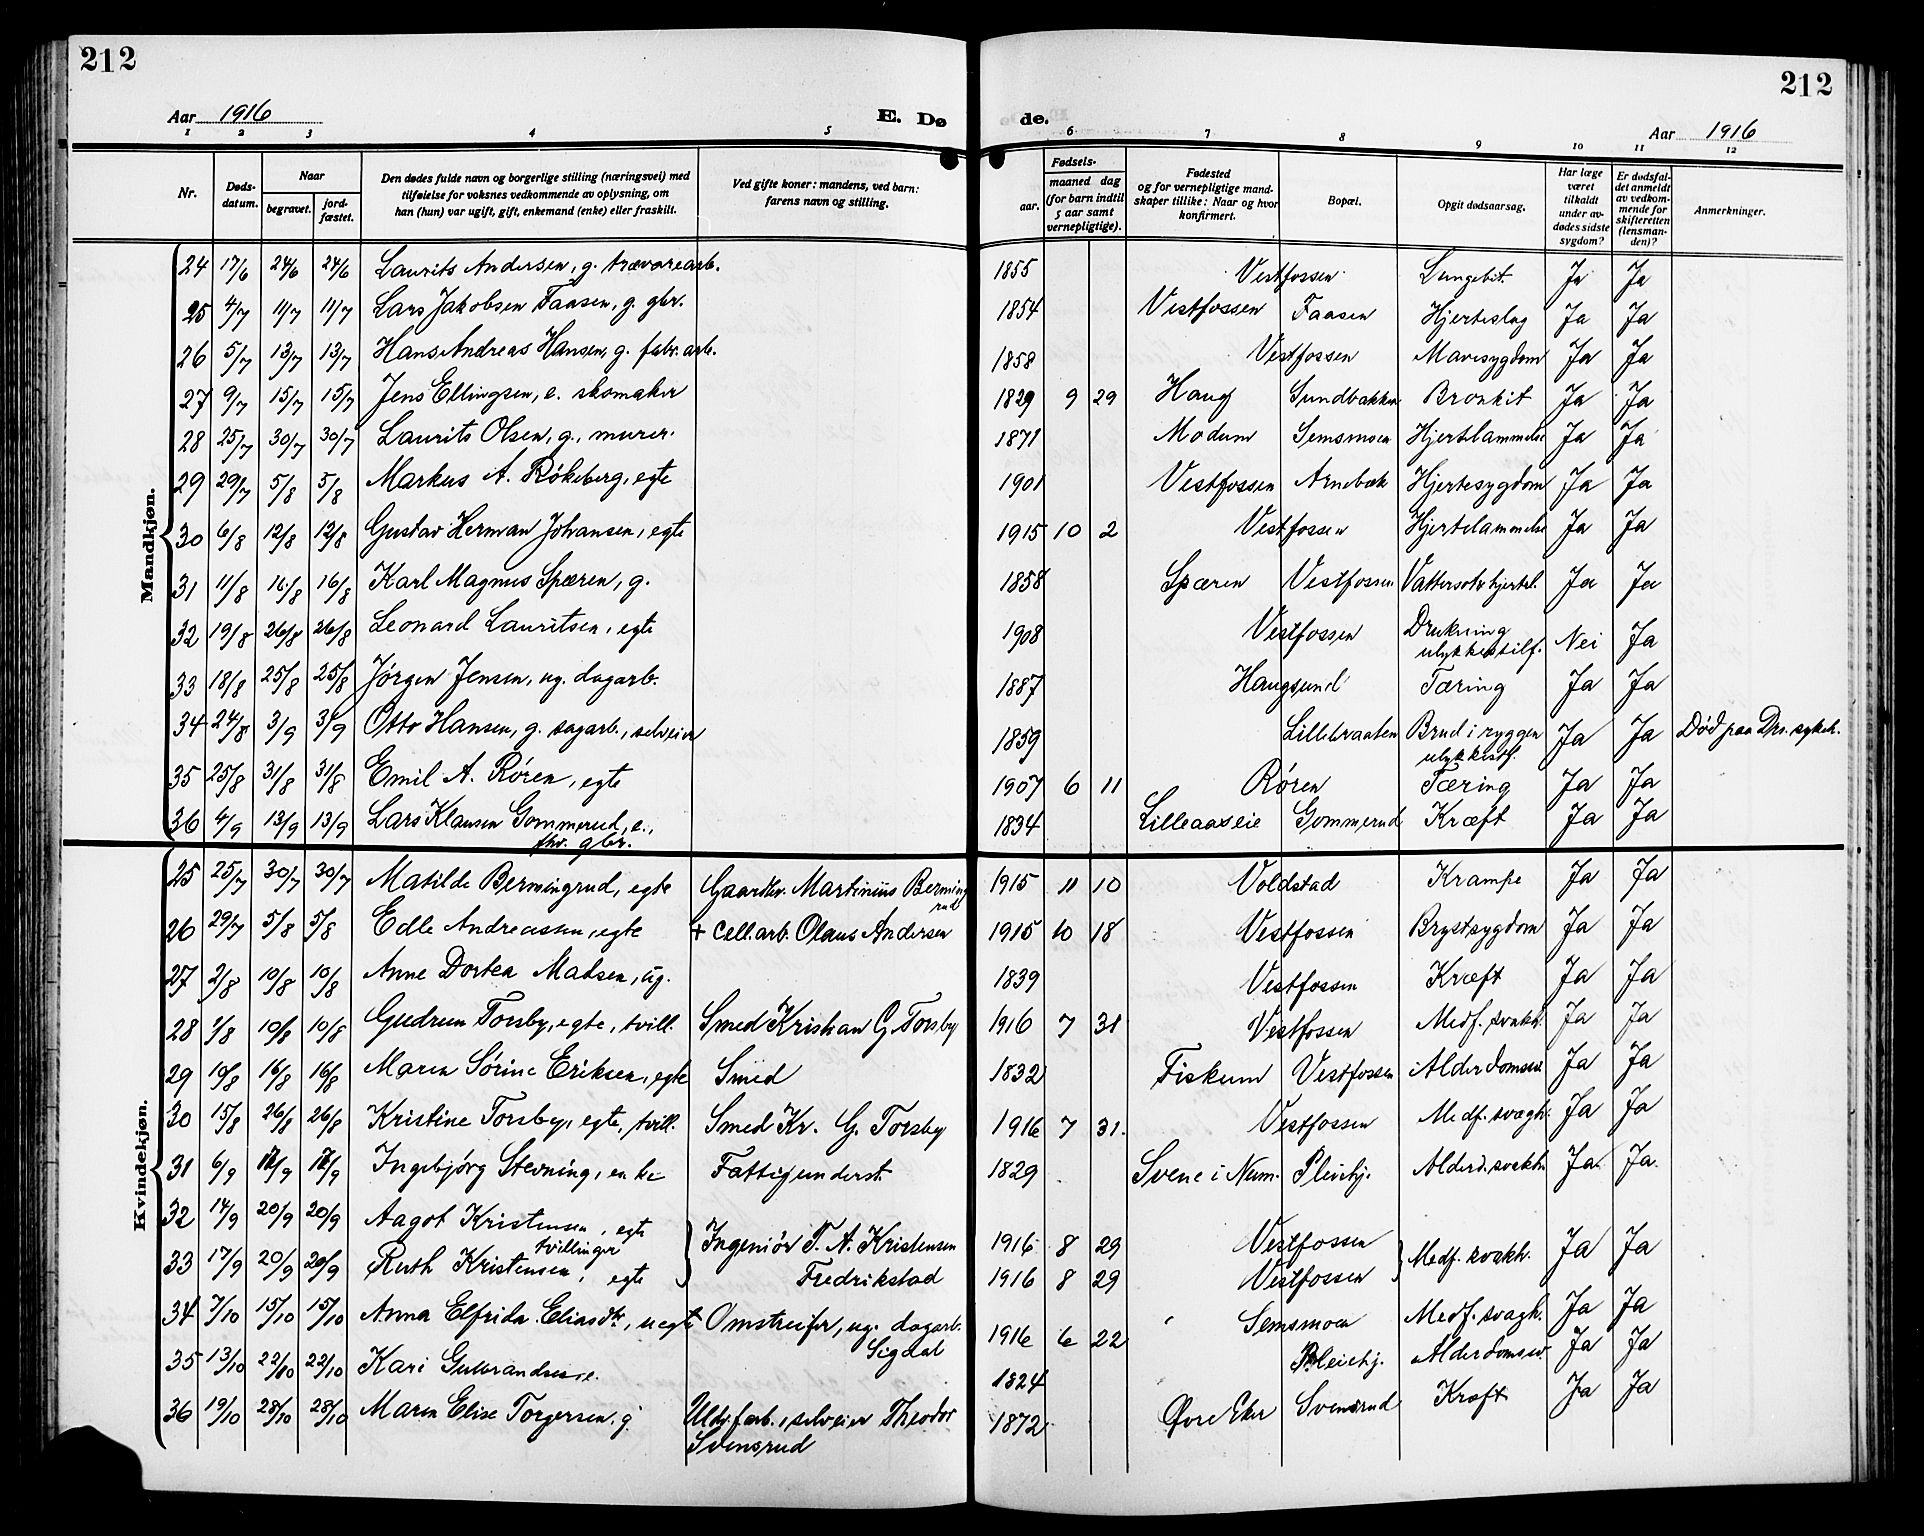 212
212
Aar 1916
E. Dø de.
Aar 1916
1 2 3 4 5 6 7 8 9 10 11 12
Nr.
Døds-
datum.
Naar
begravet.
jord-
fæstet.
Den dødes fulde navn og borgerlige stilling (næringsvei) med
tilføielse for voksnes vedkommende av oplysning, om
han (hun) var ugift, gift, enkemand (enke) eller fraskilt.
Ved gifte koner: mandens, ved barn:
farens navn og stilling.
Fødsels-
aar.
maaned dag
(for barn indtil
5 aar samt
vernepligtige).
Fødested
og for vernepligtige mand-
skaper tillike: Naar og hvor
konfirmert.
Bopæl.
Opgit dødsaarsag.
Har læge
været
tilkaldt
under av-
dødes sidste
sygdom?
Er dødsfal-
det anmeldt
av vedkom-
mende for
skifteretten
(lensman-
den)?
Anmerkninger.
Mandkjøn.
24 17/6 24/6 24/6 Laurits Andersen, g. trævarearb. 1855 Vestfossen Lungebet. Ja Ja
25 4/7 11/7 11/7 Lars Jakobsen Faasen, g. gbr. 1854 Vestfossen Faasen Hjerteslag Ja Ja
26 5/7 13/7 13/7 Hans Andreas Hansen, g. fabr. arb. 1858 Vestfossen Mavesygdom Ja Ja
27 9/7 15/7 15/7 Jens Ellingsen, e. skomaker 1829 9 29 Haug Sundbakken Bronkit Ja Ja
28 25/7 30/7 30/7 Laurits Olsen, g., murer. 1871 Modum Semsmoen Hjertelammelse Ja Ja
29 29/7 5/8 5/8 Markus A. Røkeberg, egte 1901 Vestfossen Arnebæk Hjertesygdom Ja Ja
30 6/8 12/8 12/8 Gustav Herman Johansen, egte 1915 10 2 Vestfossen Hjertelammelse Ja Ja
31 11/8 16/8 16/8 Karl Magnus Spæren, g. 1858 Spæren Vestfossen Vattersot hjertel. Ja Ja
32 19/8 26/8 26/8 Leonard Lauritsen, egte 1908 Vestfossen Drukning
ulykkestilf. Nei Ja
33 18/8 25/8 25/8 Jørgen Jensen, ug. dagarb. 1887 Haugsund Tæring Ja Ja
34 24/8 3/9 3/9 Otto Hansen, g. sagarb., selveier 1859 Lillebraaten Brud i ryggen
ulykkestf. Ja Ja Død paa Drs. sykeh.
35 25/8 31/8 31/8 Emil A. Røren, egte 1907 6 11 Røren Tæring Ja Ja
36 4/9 13/9 13/9 Lars Klausen Gommerud, e.,
fhv. gbr. 1834 Lilleaaseie Gommerud Kræft Ja Ja
Kvindekjøn.
25 25/7 30/7 30/7 Matilde Bermingrud, egte Gaardbr. Martinius Berming
rud 1915 11 10 Voldstad Krampe Ja Ja
26 29/7 5/8 5/8 Edle Andreassen, egte + Cell. arb. Olaus Andersen 1915 10 18 Vestfossen Brystsygdom Ja Ja
27 2/8 10/8 10/8 Anne Dortea Madsen, ug. 1839 Vestfossen Kræft Ja Ja
28 1/8 10/8 10/8 Gudrun Torsby, egte, tvill. Smed Kristian G. Torsby 1916 7 31 Vestfossen Medf. svakh. Ja Ja
29 10/8 16/8 16/8 Maren Sørine Eriksen, egte Smed 1832 Fiskum Vestfossen Alderdomssv. Ja Ja
30 15/8 26/8 26/8 Kristine Torsby, egte, tvill. Smed Kr. G. Torsby 1916 7 31. Vestfossen Medf. svagh. Ja Ja
31 6/9 12/9 12/9 Ingebjørg Stevning, enke Fattigunderst. 1829 Svene i Num. Pleiehj. Alderd. svakh. Ja Ja.
32 14/9 20/9 20/9 Aagot Kristensen, egte Ingeniør T. A. Kristensen 1916 8 29 Vestfossen Medf. svakh. Ja Ja
tvillinger
33 17/9 20/9 20/9 Ruth Kristensen, egte Fredrikstad 1916 8 29 Vestfossen
34 7/10 15/10 15/10 Anna Elfrida Eliasdtr, uegte Omstreifer, ug. dagarb.
Sigdal 1916 6 22 Semsmoen Medf. svagh. Ja Ja
35 13/10 22/10 22/10 Kari Gulbrandsen e. 1824 Pleiehj. Alderdomssv. Ja Ja
36 19/10 28/10 28/10 Maren Elise Torgersen, g. Uldfarb., selveier Theodor
Svensrud 1872 Øvre Eker Svensrud Kræft Ja Ja